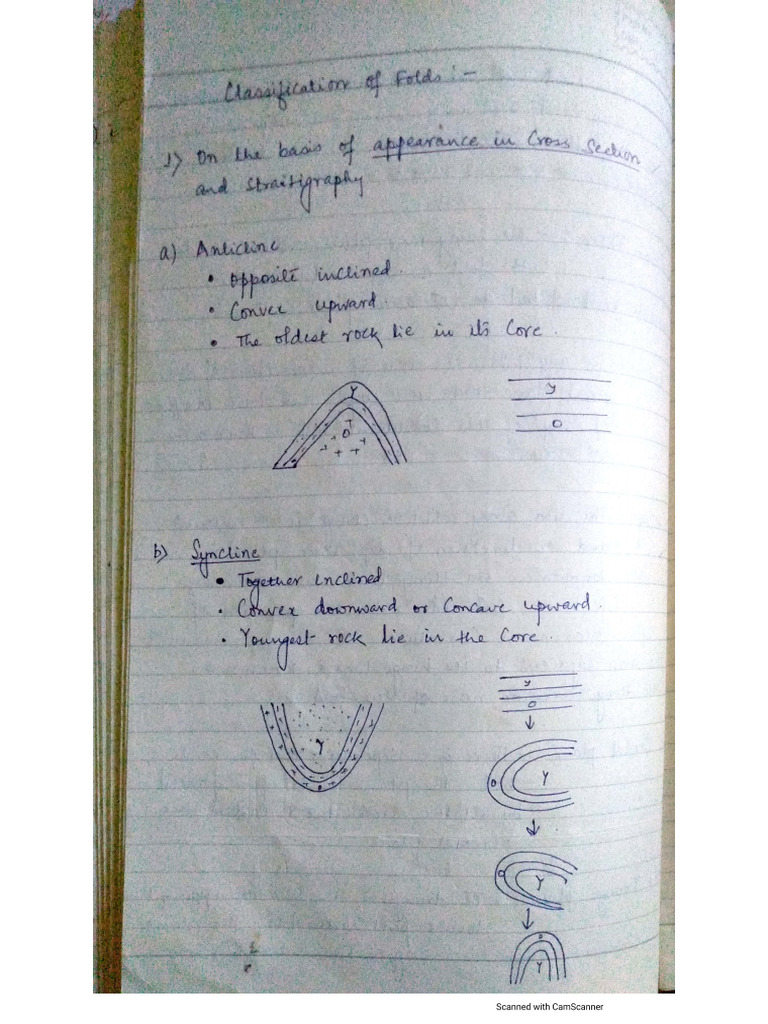 Classification of Folds :-
1) On the basis of appearance in Cross Section
and Straitigraphy
a) Anticline
• Opposite inclined.
• Convex upward.
• The oldest rock lie in its Core.
Y
O
Y
O
b) Syncline
• Together inclined
• Convex downward or Concave upward.
• Youngest rock lie in the Core.
Y
O
Y
O
O Y
O Y
O
Y
Scanned with CamScanner